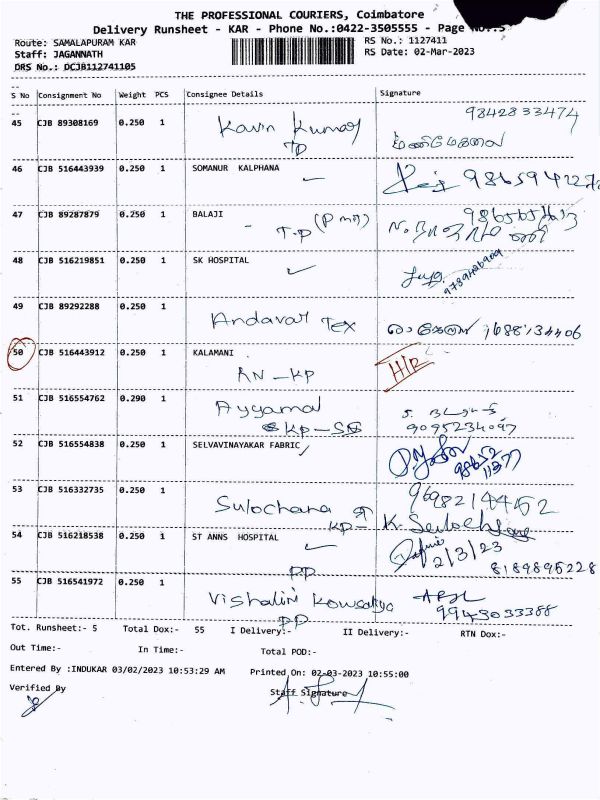 THE PROFESSIONAL COURIERS, Coimbatore
Delivery Runsheet - KAR - Phone No.:0422-3505555 - Page No.:5
Route: SAMALAPURAM KAR
RS No.: 1127411
Staff: JAGANNATH
RS Date: 02-Mar-2023
DRS No.: DCJB112741105
S No Consignment No Weight PCS Consignee Details Signature
9842833474
45 CJB 89308169 0.250 1 Kavin Kumar
TP
46 CJB 516443939 0.250 1 SOMANUR KALPHANA
47 CJB 89287879 0.250 1 BALAJI
T.P
48 CJB 516219851 0.250 1 SK HOSPITAL
9789426909
49 CJB 89292288 0.250 1 Andavar Tex
50 CJB 516443912 0.250 1 KALAMANI H/R
RN - KP
51 CJB 516554762 0.290 1 Ayyamal
KP - SS
9095234097
52 CJB 516554838 0.250 1 SELVAVINAYAKAR FABRIC
98652
11377
53 CJB 516332735 0.250 1 Sulochana
KP -
54 CJB 516218538 0.250 1 ST ANNS HOSPITAL 2/3/23
PP 8189895228
55 CJB 516541972 0.250 1 Vishalini Kowsalya
PP 9943033388
Tot. Runsheet:- 5 Total Dox:- 55 I Delivery:- II Delivery:- RTN Dox:-
Out Time:- In Time:- Total POD:-
Entered By :INDUKAR 03/02/2023 10:53:29 AM Printed On: 02-03-2023 10:55:00
Verified By Staff Signature